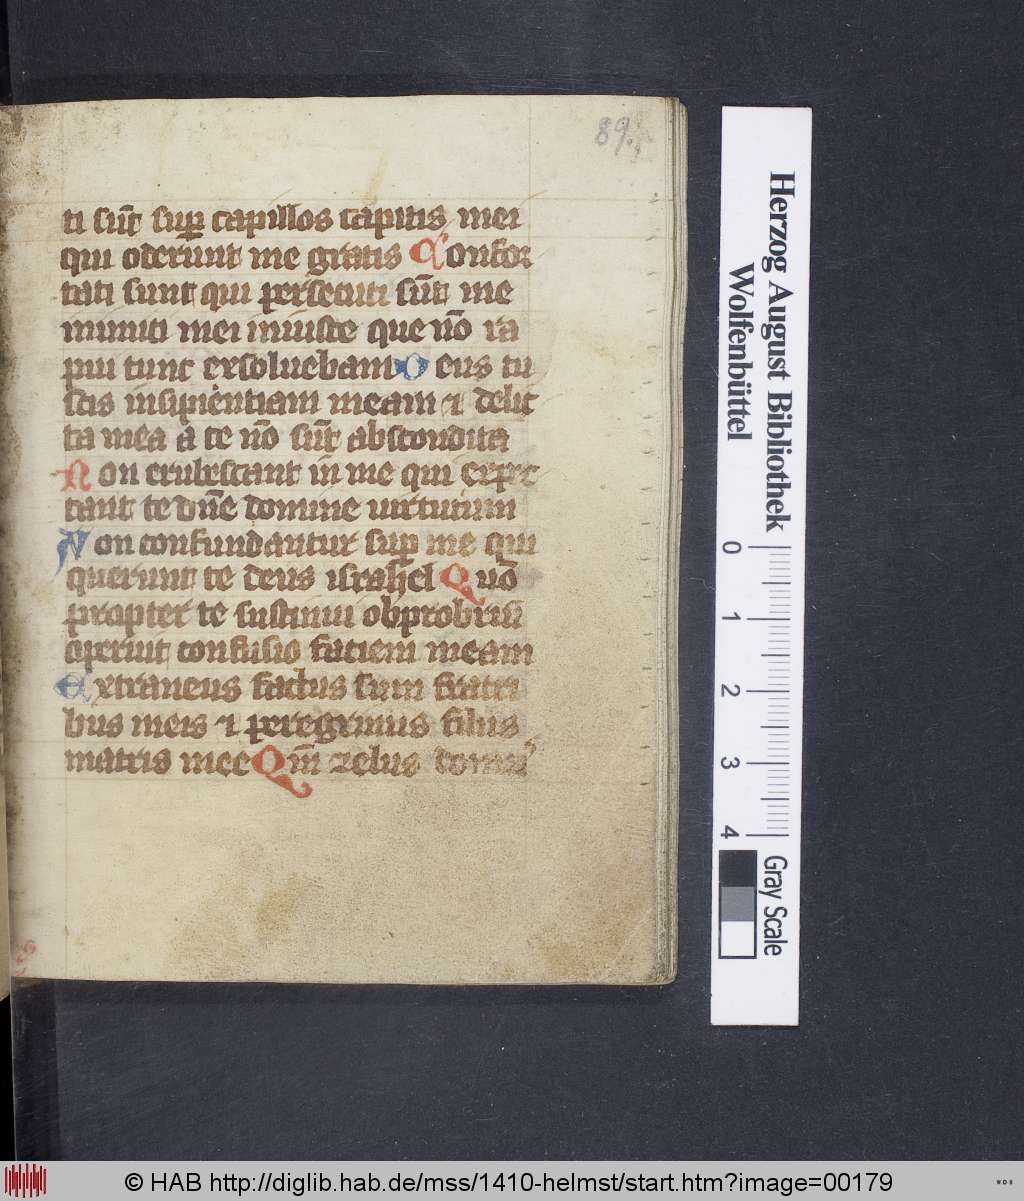 89.
ti sūt sup̄ capillos capitis mei
qui oderunt me gratis Confor
tati sunt qui persecuti sūt me
inimici mei iniuste que nō ra
pui tunc exsoluebam Deus tu
scis insipientiam meam et delic
ta mea a te nō sūt abscondita
Non erubescant in me qui expec
tant te dn̄e domine uirtutum
Non confundantur sup̄ me qui
querunt te deus israhel Qn̄o
propter te sustinui obprobriū
operuit confusio faciem meam
Extraneus factus sum fratri
bus meis et peregrinus filiis
matris mee Qm̄ zelus domus
Herzog August Bibliothek
Wolfenbüttel
0 1 2 3 4
Gray Scale
© HAB http://diglib.hab.de/mss/1410-helmst/start.htm?image=00179